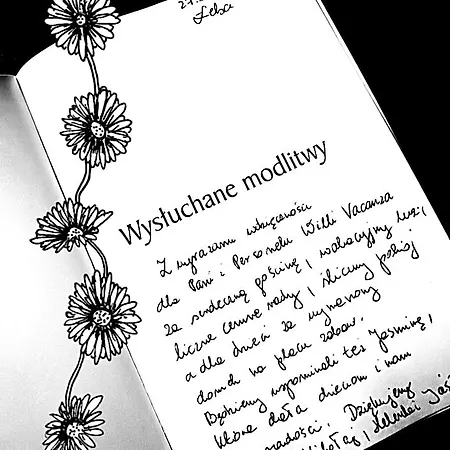 Łeba
Wysłuchane modlitwy
Z wyrazami wdzięczności
dla Pani i Personelu Willi Vacanza
za serdeczną gościnę, wakacyjny luz,
liczne cenne rady, śliczny pokój
a dla dzieci za wymarzony
domek na placu zabaw.
Będziemy wspominali też Jaśminę,
która dała dzieciom i nam
radości. Dziękujemy